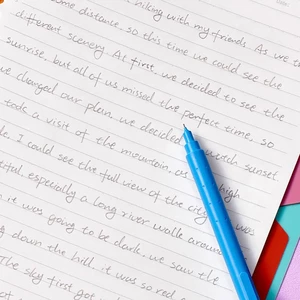 hiking with my friends. As we t
some distance, so this time we could see the
different scenery. At first, we decided to see the
sunrise, but all of us missed the perfect time, so
we changed our plan, we decided watch sunset.
took a visit of the mountain, high
I could see the full view of the city was
tiful, especially a long river walk around
it was going to be dark, we saw the
down the hill. it was so red
The sky first got